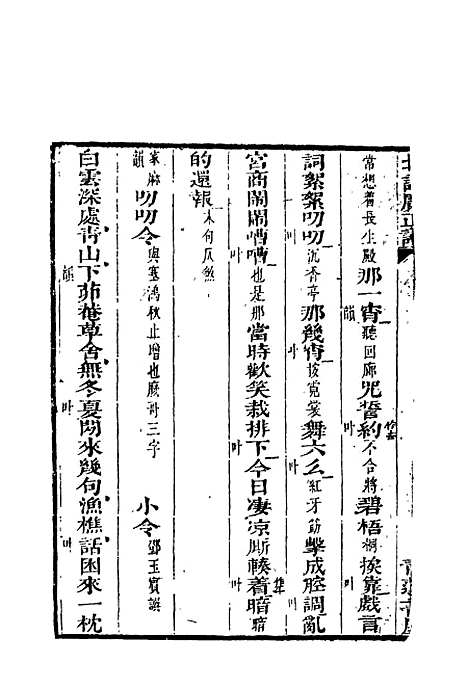 常想着長生殿那一宵韻聽回廊咒誓約叶作去不合將碧梧桐挨靠戲言
詞絮絮叨叨沉香亭那幾宵叶按霓裳舞六么叶紅牙筯擊成腔調亂
宮商鬧鬧嘈嘈叶也是那當時歡笑栽排下叶今日凄凉厮輳着暗暗
的還報末句瓜煞
叨叨令與塞鴻秋止增也麼哥三字　小令鄧玉賓譔
家麻韻
白雲深處青山下韻茆菴草舍無冬夏叶閑來幾句漁樵話叶困來一枕